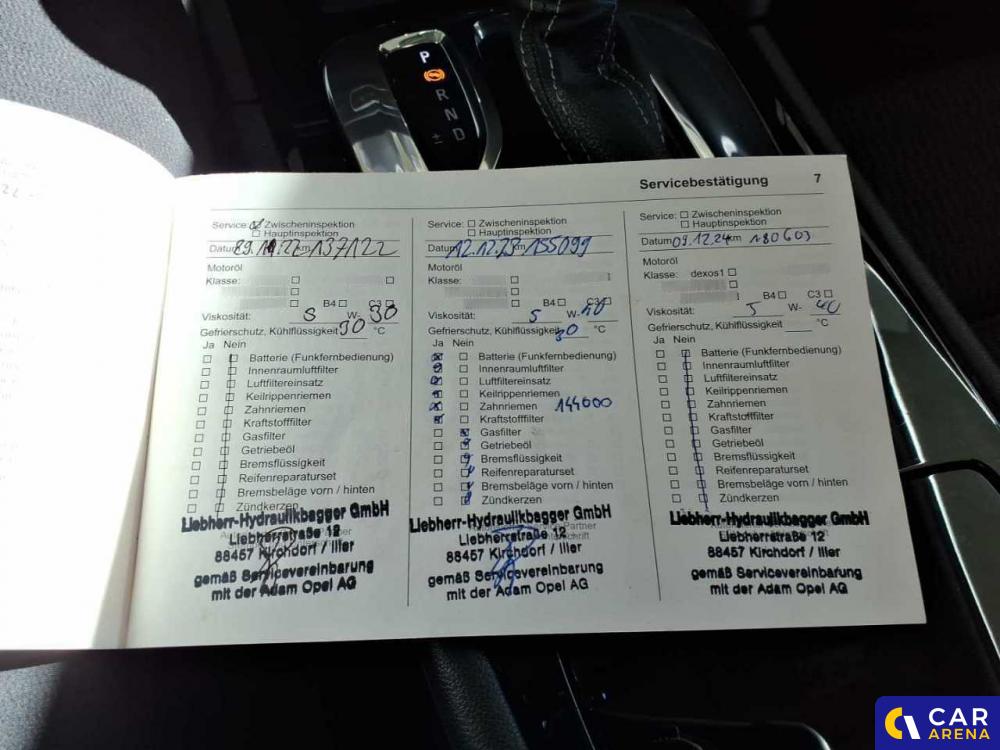 P
R
N
D
±
Servicebestätigung 7
Service: Zwischeninspektion
Hauptinspektion
Datum km 137122
Motoröl
Klasse:
B4 C3
Viskosität: 5 W- 30
Gefrierschutz, Kühlflüssigkeit 30 °C
Ja Nein
Batterie (Funkfernbedienung)
Innenraumluftfilter
Luftfiltereinsatz
Keilrippenriemen
Zahnriemen
Kraftstofffilter
Gasfilter
Getriebeöl
Bremsflüssigkeit
Reifenreparaturset
Bremsbeläge vorn / hinten
Zündkerzen
Liebherr-Hydraulikbagger GmbH
Liebherrstraße 12
88457 Kirchdorf / Iller
gemäß Servicevereinbarung
mit der Adam Opel AG
Service: Zwischeninspektion
Hauptinspektion
Datum 12.12.23 km 155099
Motoröl
Klasse:
B4 C3
Viskosität: 5 W- 40
Gefrierschutz, Kühlflüssigkeit 30 °C
Ja Nein
Batterie (Funkfernbedienung)
Innenraumluftfilter
Luftfiltereinsatz
Keilrippenriemen
Zahnriemen 144000
Kraftstofffilter
Gasfilter
Getriebeöl
Bremsflüssigkeit
Reifenreparaturset
Bremsbeläge vorn / hinten
Zündkerzen
Liebherr-Hydraulikbagger GmbH
Liebherrstraße 12
88457 Kirchdorf / Iller
gemäß Servicevereinbarung
mit der Adam Opel AG
Service: Zwischeninspektion
Hauptinspektion
Datum 09.12.24 km 180603
Motoröl
Klasse: dexos1
B4 C3
Viskosität: 5 W- 40
Gefrierschutz, Kühlflüssigkeit °C
Ja Nein
Batterie (Funkfernbedienung)
Innenraumluftfilter
Luftfiltereinsatz
Keilrippenriemen
Zahnriemen
Kraftstofffilter
Gasfilter
Getriebeöl
Bremsflüssigkeit
Reifenreparaturset
Bremsbeläge vorn / hinten
Zündkerzen
Liebherr-Hydraulikbagger GmbH
Liebherrstraße 12
88457 Kirchdorf / Iller
gemäß Servicevereinbarung
mit der Adam Opel AG
CAR
ARENA